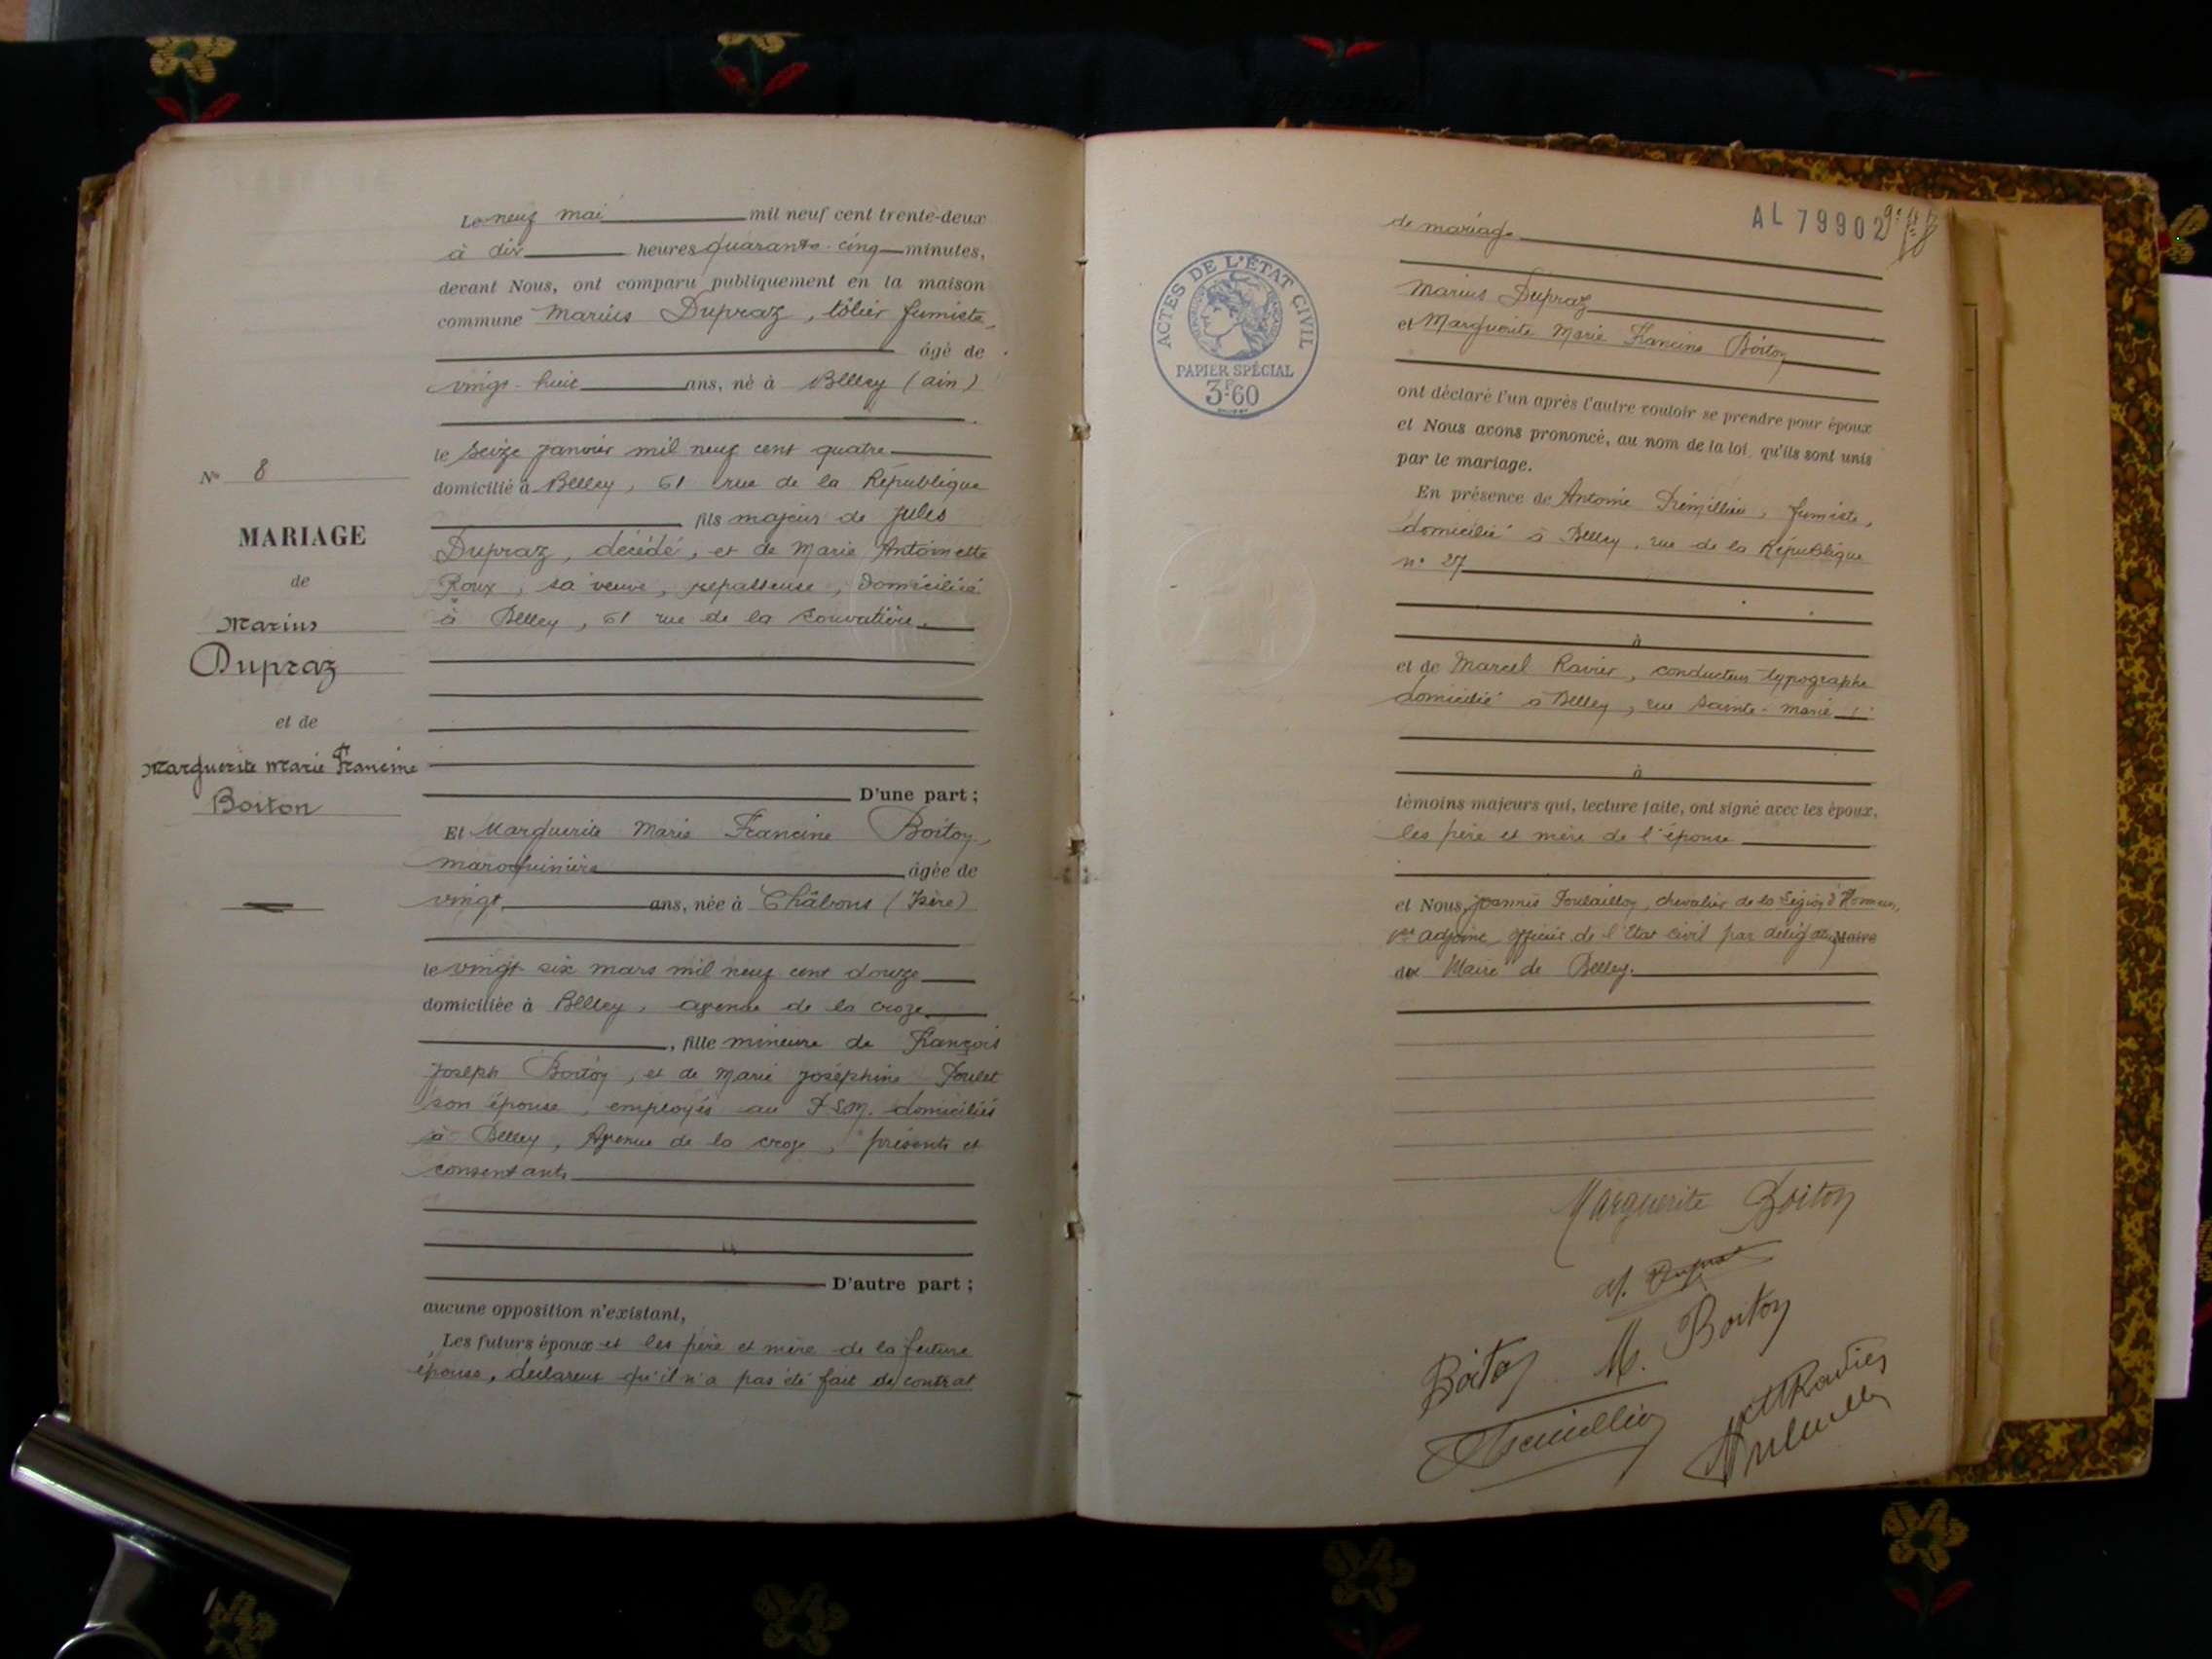 Le neuf mai mil neuf cent trente-deux
à dix heures quarante-cinq minutes,
devant Nous, ont comparu publiquement en la maison
commune Marius Dupraz, tôlier fumiste,
âgé de
vingt-huit ans, né à Belley (ain)
le seize janvier mil neuf cent quatre
domicilié à Belley, 61 rue de la République
fils majeur de Jules
Dupraz, décédé, et de Marie Antoinette
Roux, sa veuve, repasseuse, domiciliée
à Belley, 61 rue de la
D'une part ;
Et Marguerite Marie Francine Boiton,
maroquinière âgée de
vingt ans, née à Châbons (Isère)
le vingt six mars mil neuf cent douze
domiciliée à Belley, avenue de la croze
, fille mineure de François
Joseph Boiton, et de Marie Joséphine Poulet
son épouse, employés au domiciliés
à Belley, Avenue de la croze, présents et
consentants
D'autre part ;
aucune opposition n'existant,
Les futurs époux et les père et mère de la future
épouse, déclarent qu'il n'a pas été fait de contrat
N° 8
MARIAGE
de
Marius
Dupraz
et de
Marguerite Marie Francine
Boiton
AL 79902
de mariage
ACTES DE L'ÉTAT CIVIL
PAPIER SPÉCIAL
3F60
Marius Dupraz
et Marguerite Marie Francine Boiton
ont déclaré l'un après l'autre vouloir se prendre pour époux
et Nous avons prononcé, au nom de la loi, qu'ils sont unis
par le mariage.
En présence de Antoine Trémillon, fumiste,
domicilié à Belley, rue de la République
n° 27
à
et de Marcel Ravier, conducteur typographe
domicilié à Belley, rue Sainte-Marie
à
témoins majeurs qui, lecture faite, ont signé avec les époux,
les père et mère de l'épouse
et Nous, Joannès chevalier de la Légion d'Honneur,
1er adjoint officier de l'Etat civil par délégation Maire
du Maire de Belley.
Marguerite Boiton
M. Dupraz
Boiton M. Boiton
M Ravier